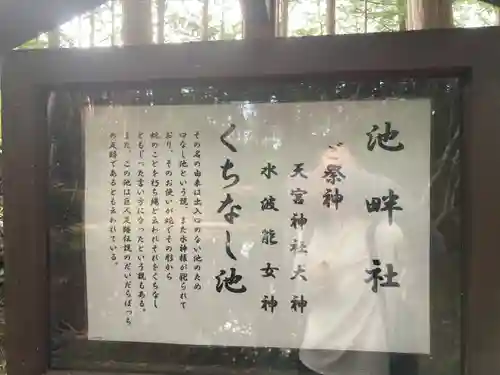 池畔社
ご祭神
天宮神社大神
水波能女神
くちなし池
その名の由来は出入口のない池のため
口なし池という説。また水神様が祀られて
おり、そのお使いが蛇でその形から
蛇のことを朽ち縄と云われそれをくちなし
ともじった言い方になったという説もある。
また、この池は巨人足跡伝説のだいだらぼっち
の足跡であるとも云われている。